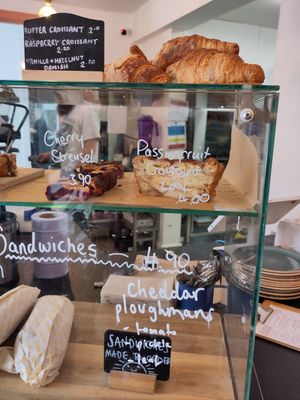 BUTTER CROISSANT 2.0
RASPBERRY CROISSANT
2.20
VANILLA + HAZELNUT
DANISH 2.20
Cherry
Streusel
3.90
Passionfruit
Croissant
Loaf
4.00
Sandwiches
4.90
Cheddar
ploughmans
tomato
SANDWICHES
MADE TO ORDER